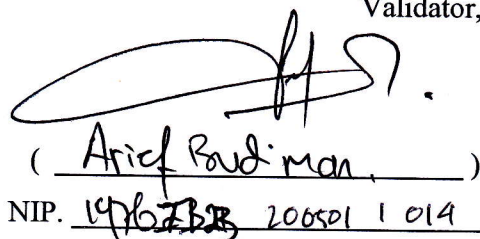 Validator,
( Arief Budiman. )
NIP. 200501 1 014